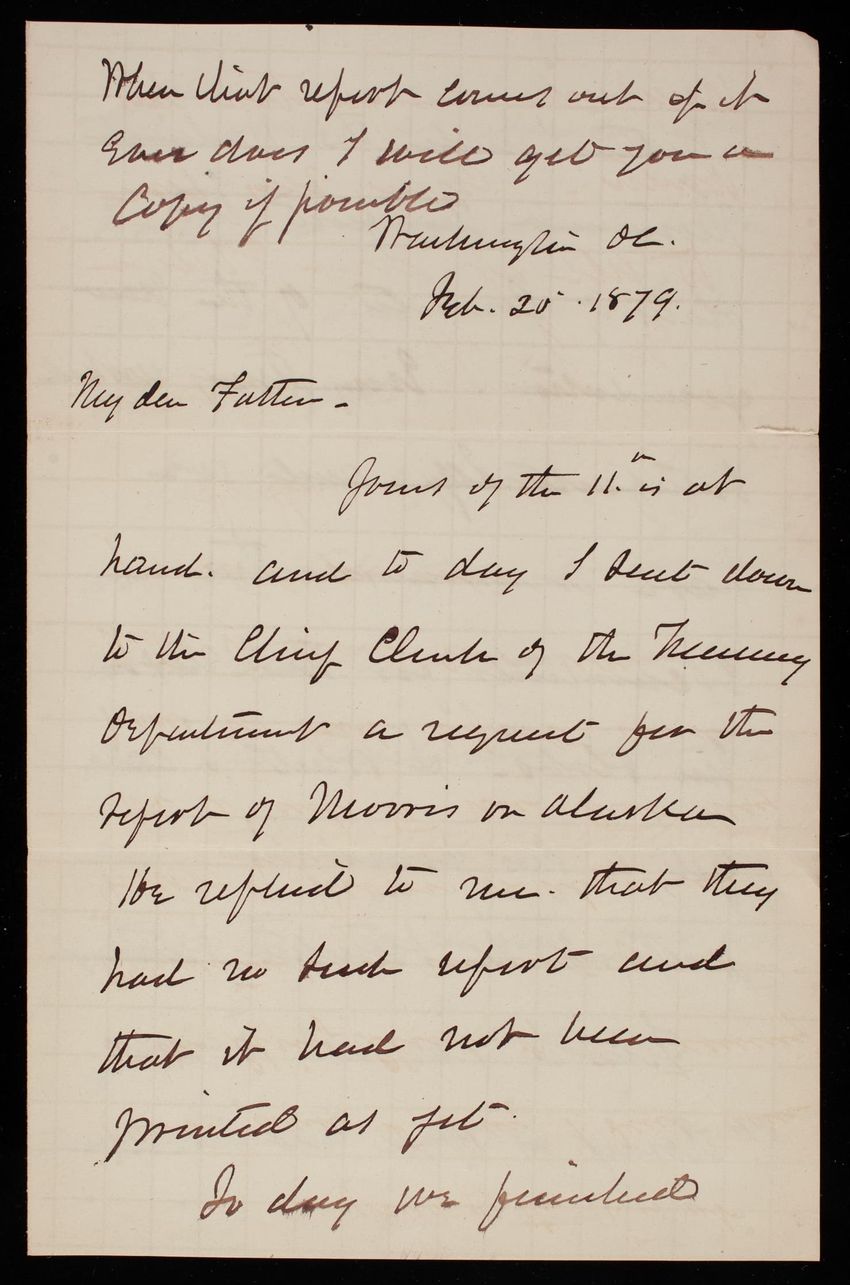 When that report comes out if it
Ever does I will get you a
Copy if possible
Washington DC.
Feb. 20. 1879.
My dear Father -
Yours of the 11.th is at
hand. and to day I sent down
to the Chief Clerk of the Treasury
Department a request for the
report of Morris on Alaska
He replied to me. that they
had no such report and
that it had not been
printed as yet.
To day we finished